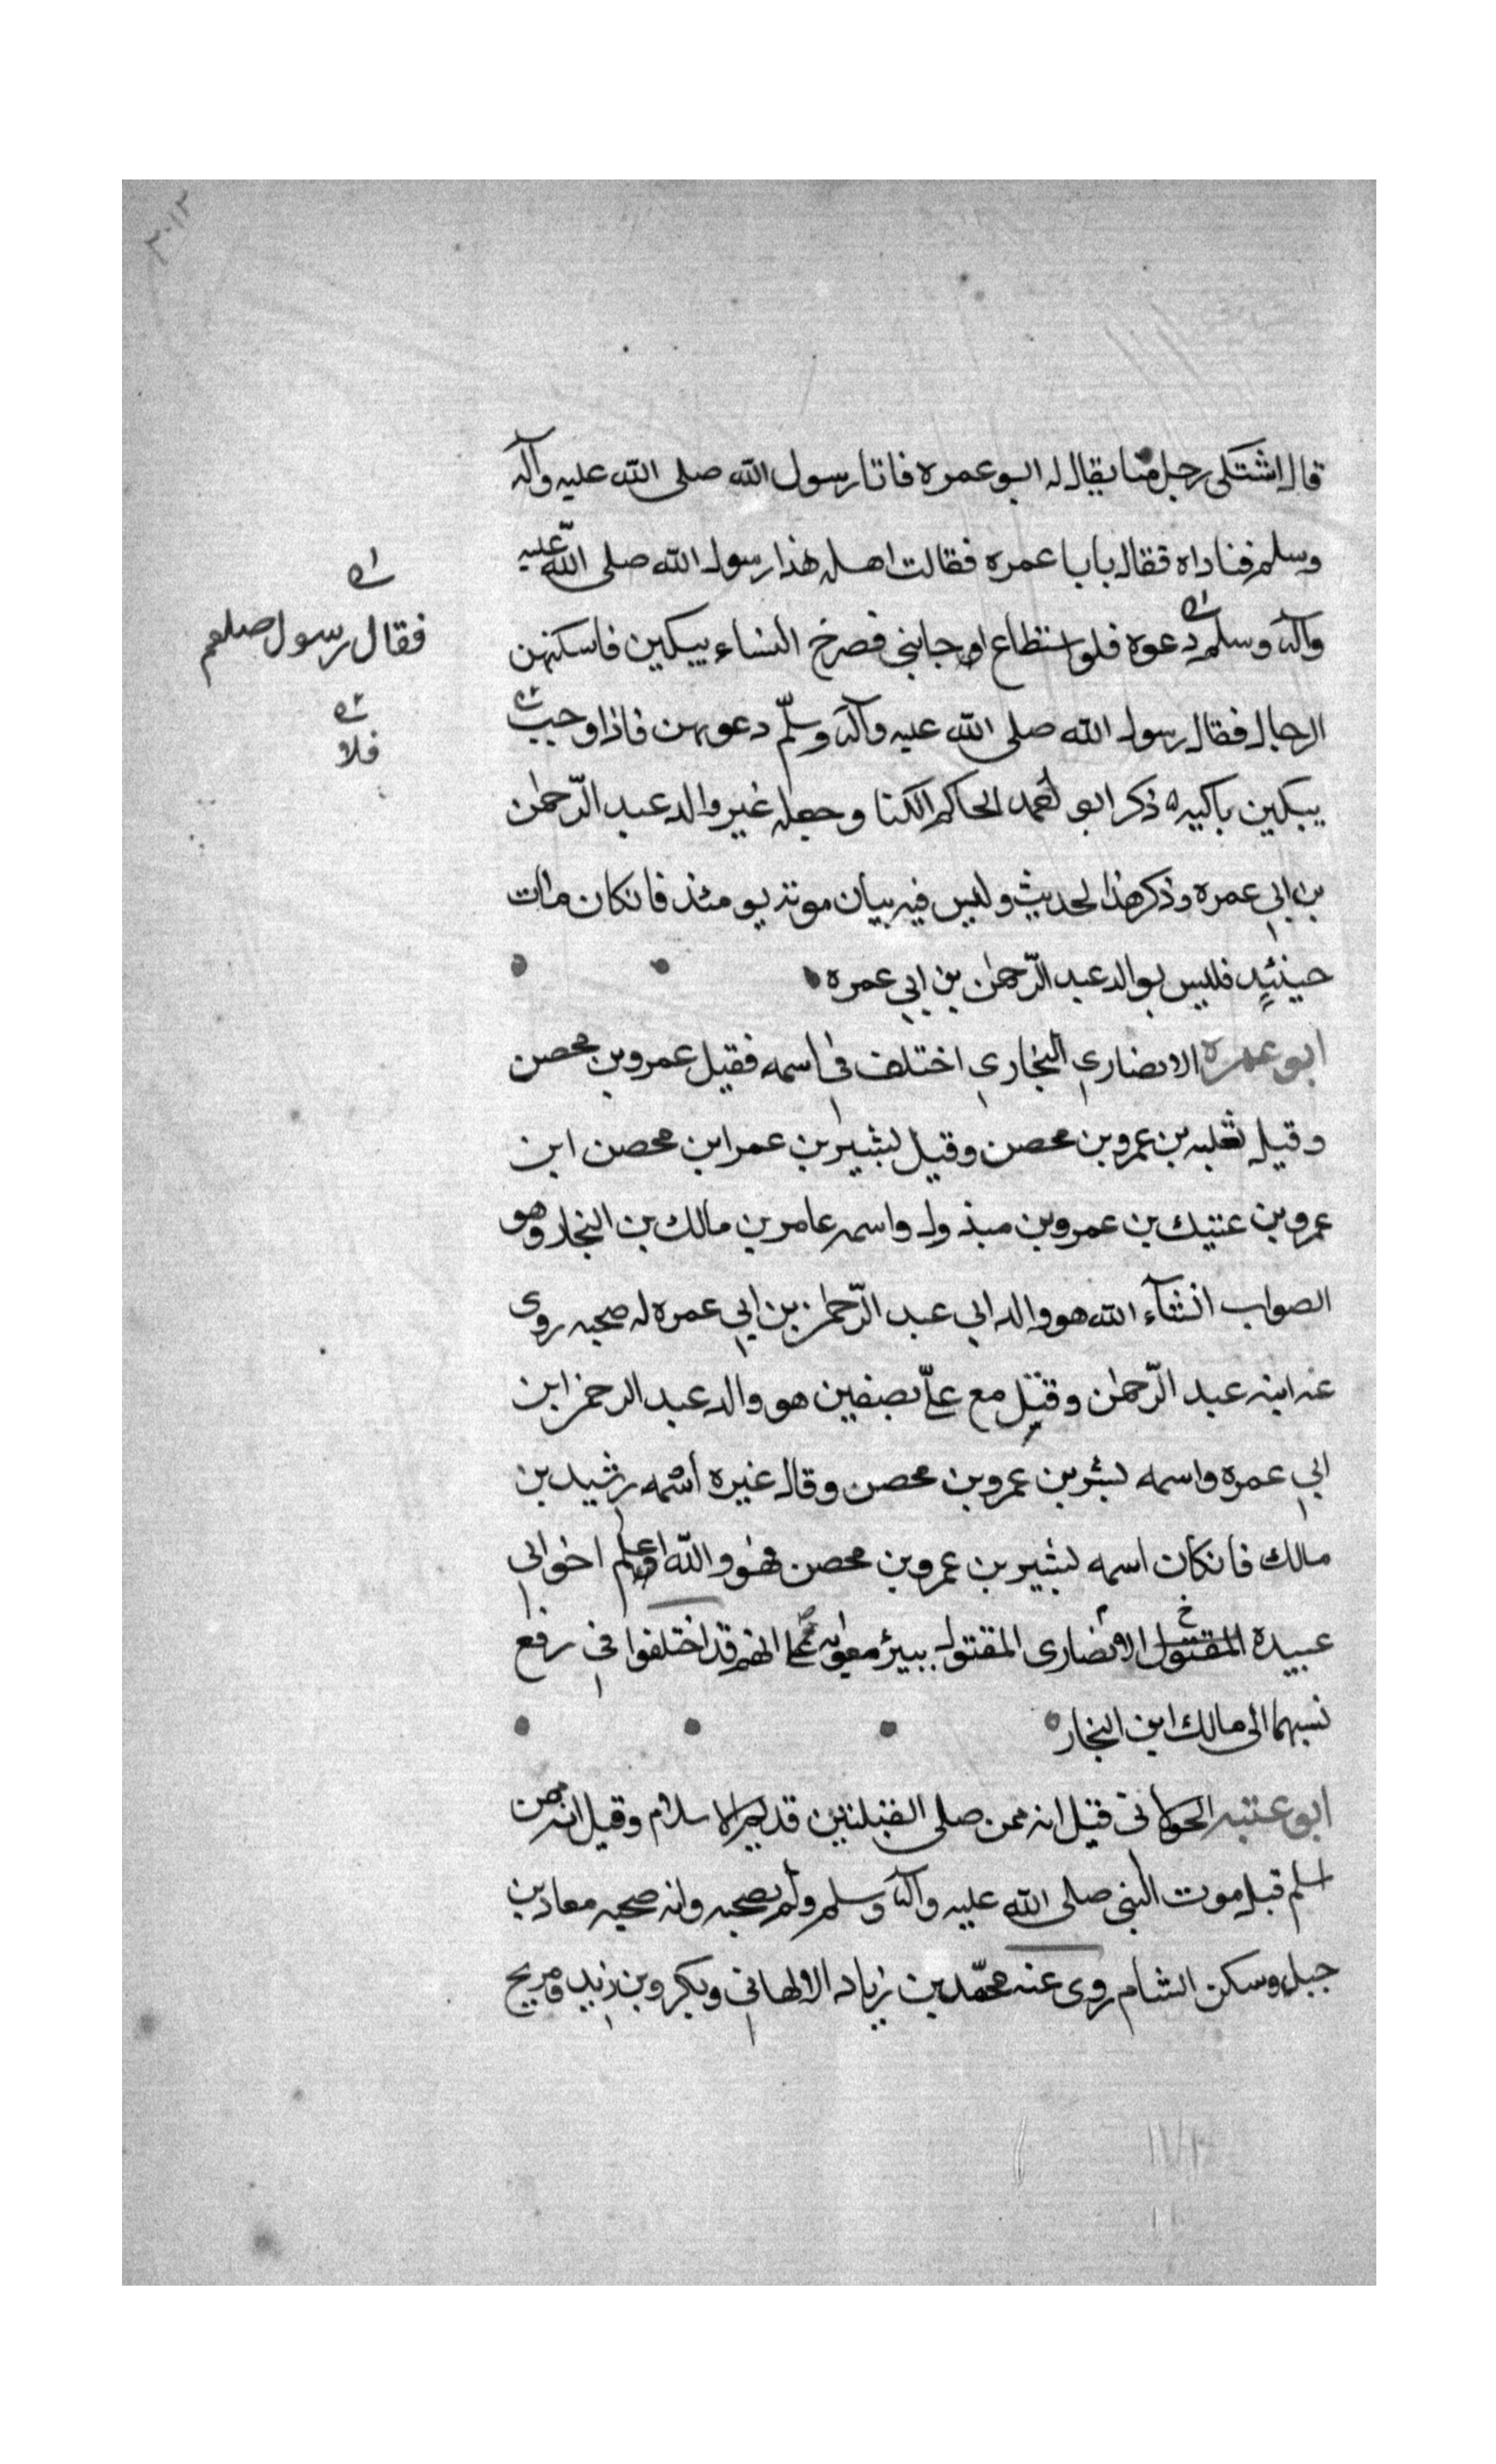 قال اشتكى رجل منا يقال له ابو عمره فاتا رسول الله صلى الله عليه وآله
وسلم فناداه فقال يابا عمره فقالت اهله هذا رسول الله صلى الله عليه
وآله وسلم دعوه فلو استطاع اوجابنى فصرخ النساء يبكين فاسكتهن
فقال رسول صلعم
الرجال فقال رسول الله صلى الله عليه وآله وسلّم دعوهن فاذا وجبت
فلا
يبكين باكيه ذكر ابو احمد الحاكم الكنا وجعله غير والد عبد الرّحمن
بن ابي عمره وذكر هذا الحديث وليس فيه بيان موته يومئذ فانكان مات
حينئيد فليس بوالد عبد الرّحمن بن ابي عمره
ابو عمره الانصاري النجاري اختلف في اسمه فقيل عمرو بن محصن
وقيل ثعلبه بن عمرو بن محصن وقيل بشير بن عمرابن محصن ابن
عمرو بن عتيك بن عمرو بن مبذول واسمه عامر بن مالك بن النجار وهو
الصواب انشآء الله هو والد ابي عبد الرّحمن بن ابي عمره له صحبه روى
عنه ابنه عبد الرّحمن وقتل مع علىّ بصفين هو والد عبد الرحمن ابن
ابي عمره واسمه بشر بن عمرو بن محصن وقال غيره اسمه رشيد بن
مالك فانكان اسمه بشير بن عمرو بن محصن فهو والله اعلم اخو ابي
عبيدة المقتول الانصارى المقتول ببير معونه على انهم قد اختلفوا في رفع
نسبهما الى مالك ابن النجار
ابو عتبه الخولانى قيل انه ممن صلى القبلتين قديم الاسلام وقيل انه ممن
اسلم قبل موت النبى صلى الله عليه وآله وسلم ولم يصحبه وانه صحبه معاد بن
جبل وسكن الشام روى عنه محمّد بن زياد الالهاني وبكر وبن زيد